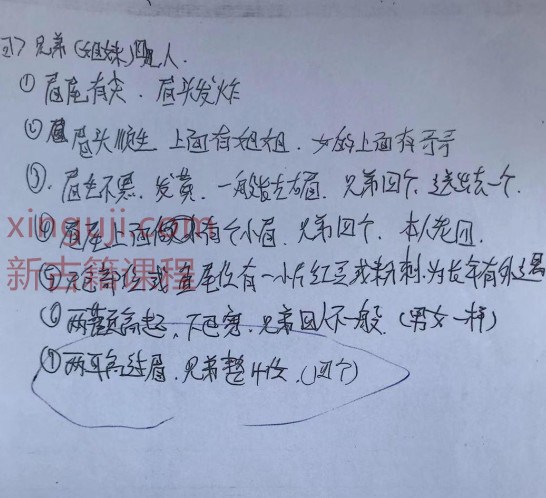 兄弟(姐妹)四人.
① 眉尾有尖.眉头发炸
② 眉头顺生 上面有姐姐.女的上面有哥哥
③.眉毛不黑.发黄.一般指左右眉.兄弟四个.送出去一个.
④ 眉尾上面 有个小眉.兄弟四个.本人老四.
⑤ 部位或 尾位有一小片红豆或粉刺.为长年有外遇
⑥ 两颧高起.下巴宽.兄弟四人不一般.(男女一样)
⑦ 两耳高过眉.兄弟整 (四个)
xinguji.com
新古籍课程